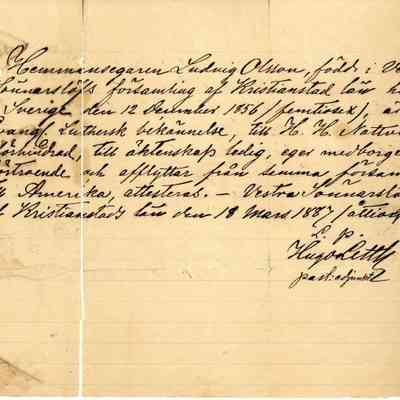 Hemmansegaren Ludvig Olsson, född i Ve
Sönnarslöfs församling af Kristianstad län
Sverige den 12 December 1856 (femtiosex), är
vang. Luthersk bekännelse, till H. H. Nattv
till äktenskap ledig, eger medborger
förtroende och afflyttar från samma försam
Amerika, attesteras. – Vestra Sönnarslö
Kristianstads län den 18 Mars 1887 (åttio
L. p.
Hugo
past: adjunkt